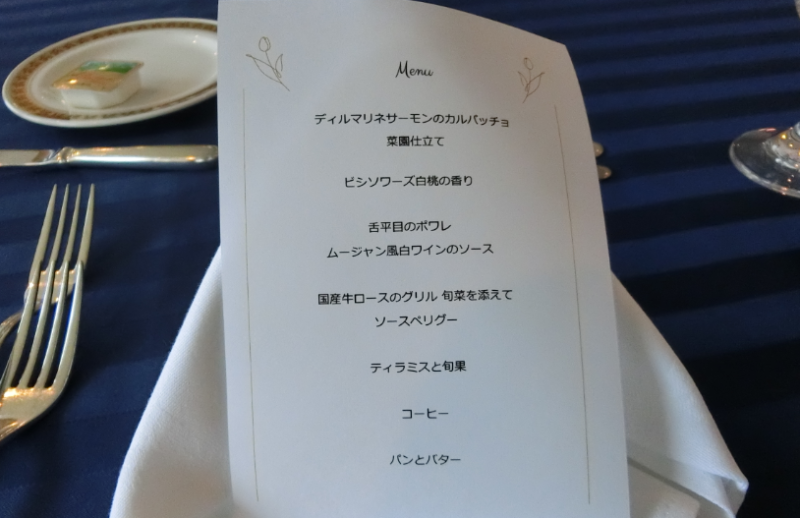 Menu
ディルマリネサーモンのカルパッチョ
菜園仕立て
ビシソワーズ白桃の香り
舌平目のポワレ
ムージャン風白ワインのソース
国産牛ロースのグリル 旬菜を添えて
ソースペリグー
ティラミスと旬果
コーヒー
パンとバター